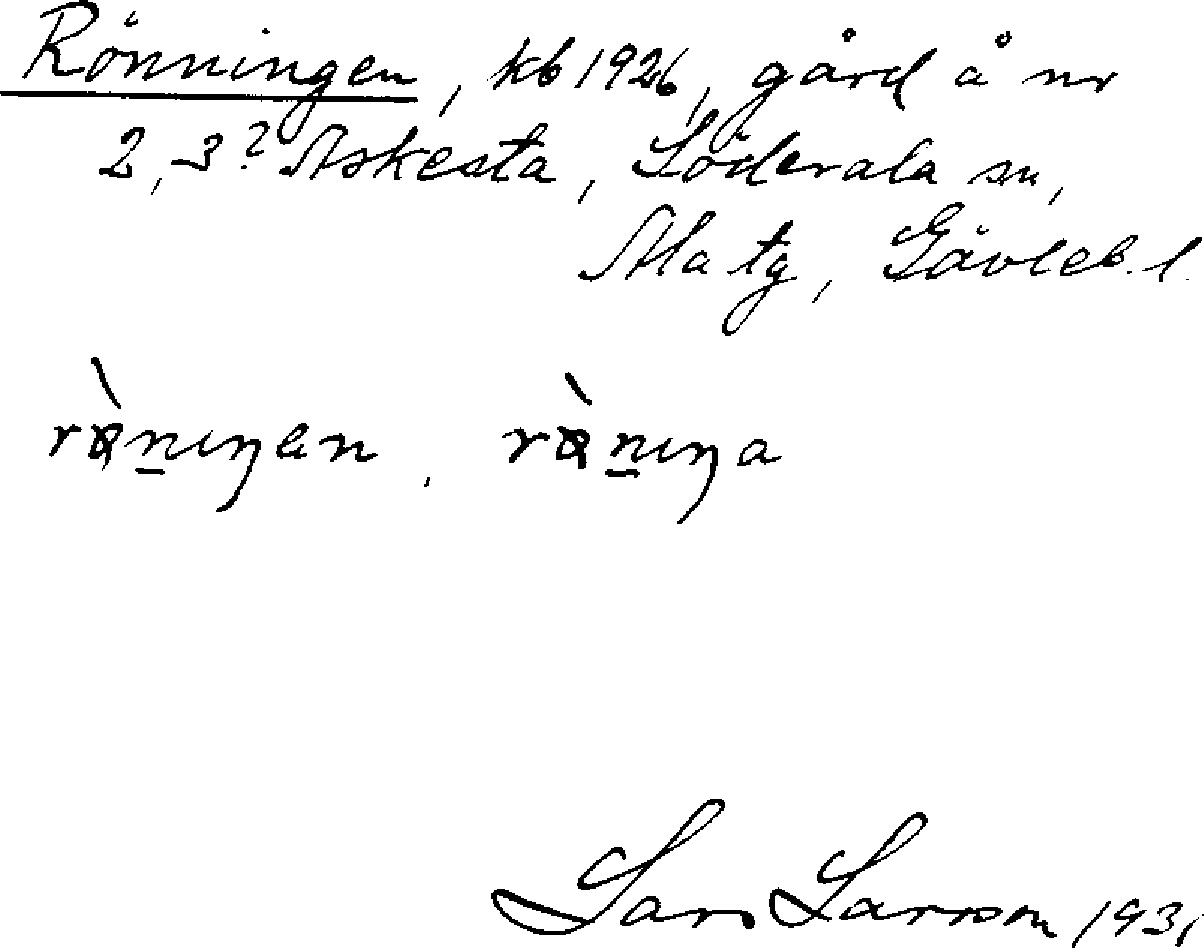 Rönningen, kb 1926, gård å nr
2, 3? Askesta, Söderala sn,
Ala tg, Gävleb. l.
rö̀nıŋen, rö̀nıŋa
Lars Larsson 1931